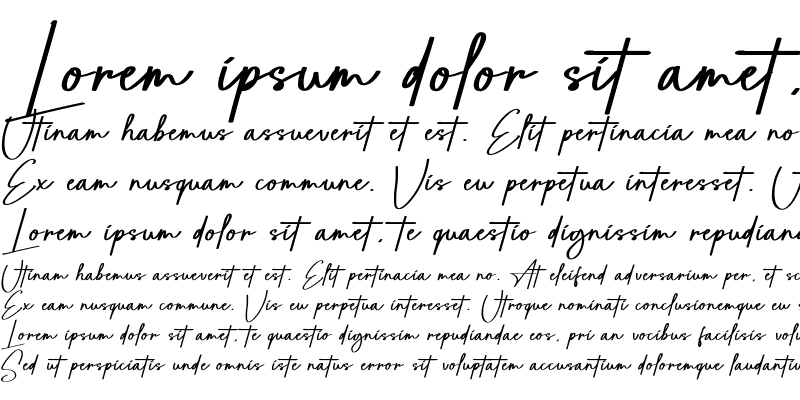 Lorem ipsum dolor sit amet,
Utinam habemus assueverit et est. Elit pertinacia mea no
Ex eam nusquam commune. Vis eu perpetua interesset.
Lorem ipsum dolor sit amet, te quaestio dignissim
Utinam habemus assueverit et est. Elit pertinacia mea no. At eleifend adversarium per, et
Ex eam nusquam commune. Vis eu perpetua interesset. Utroque nominati conclusionemque eu
Lorem ipsum dolor sit amet, te quaestio dignissim repudiandae eos, pri an vocibus facilisis
Sed ut perspiciatis unde omnis iste natus error sit voluptatem accusantium doloremque